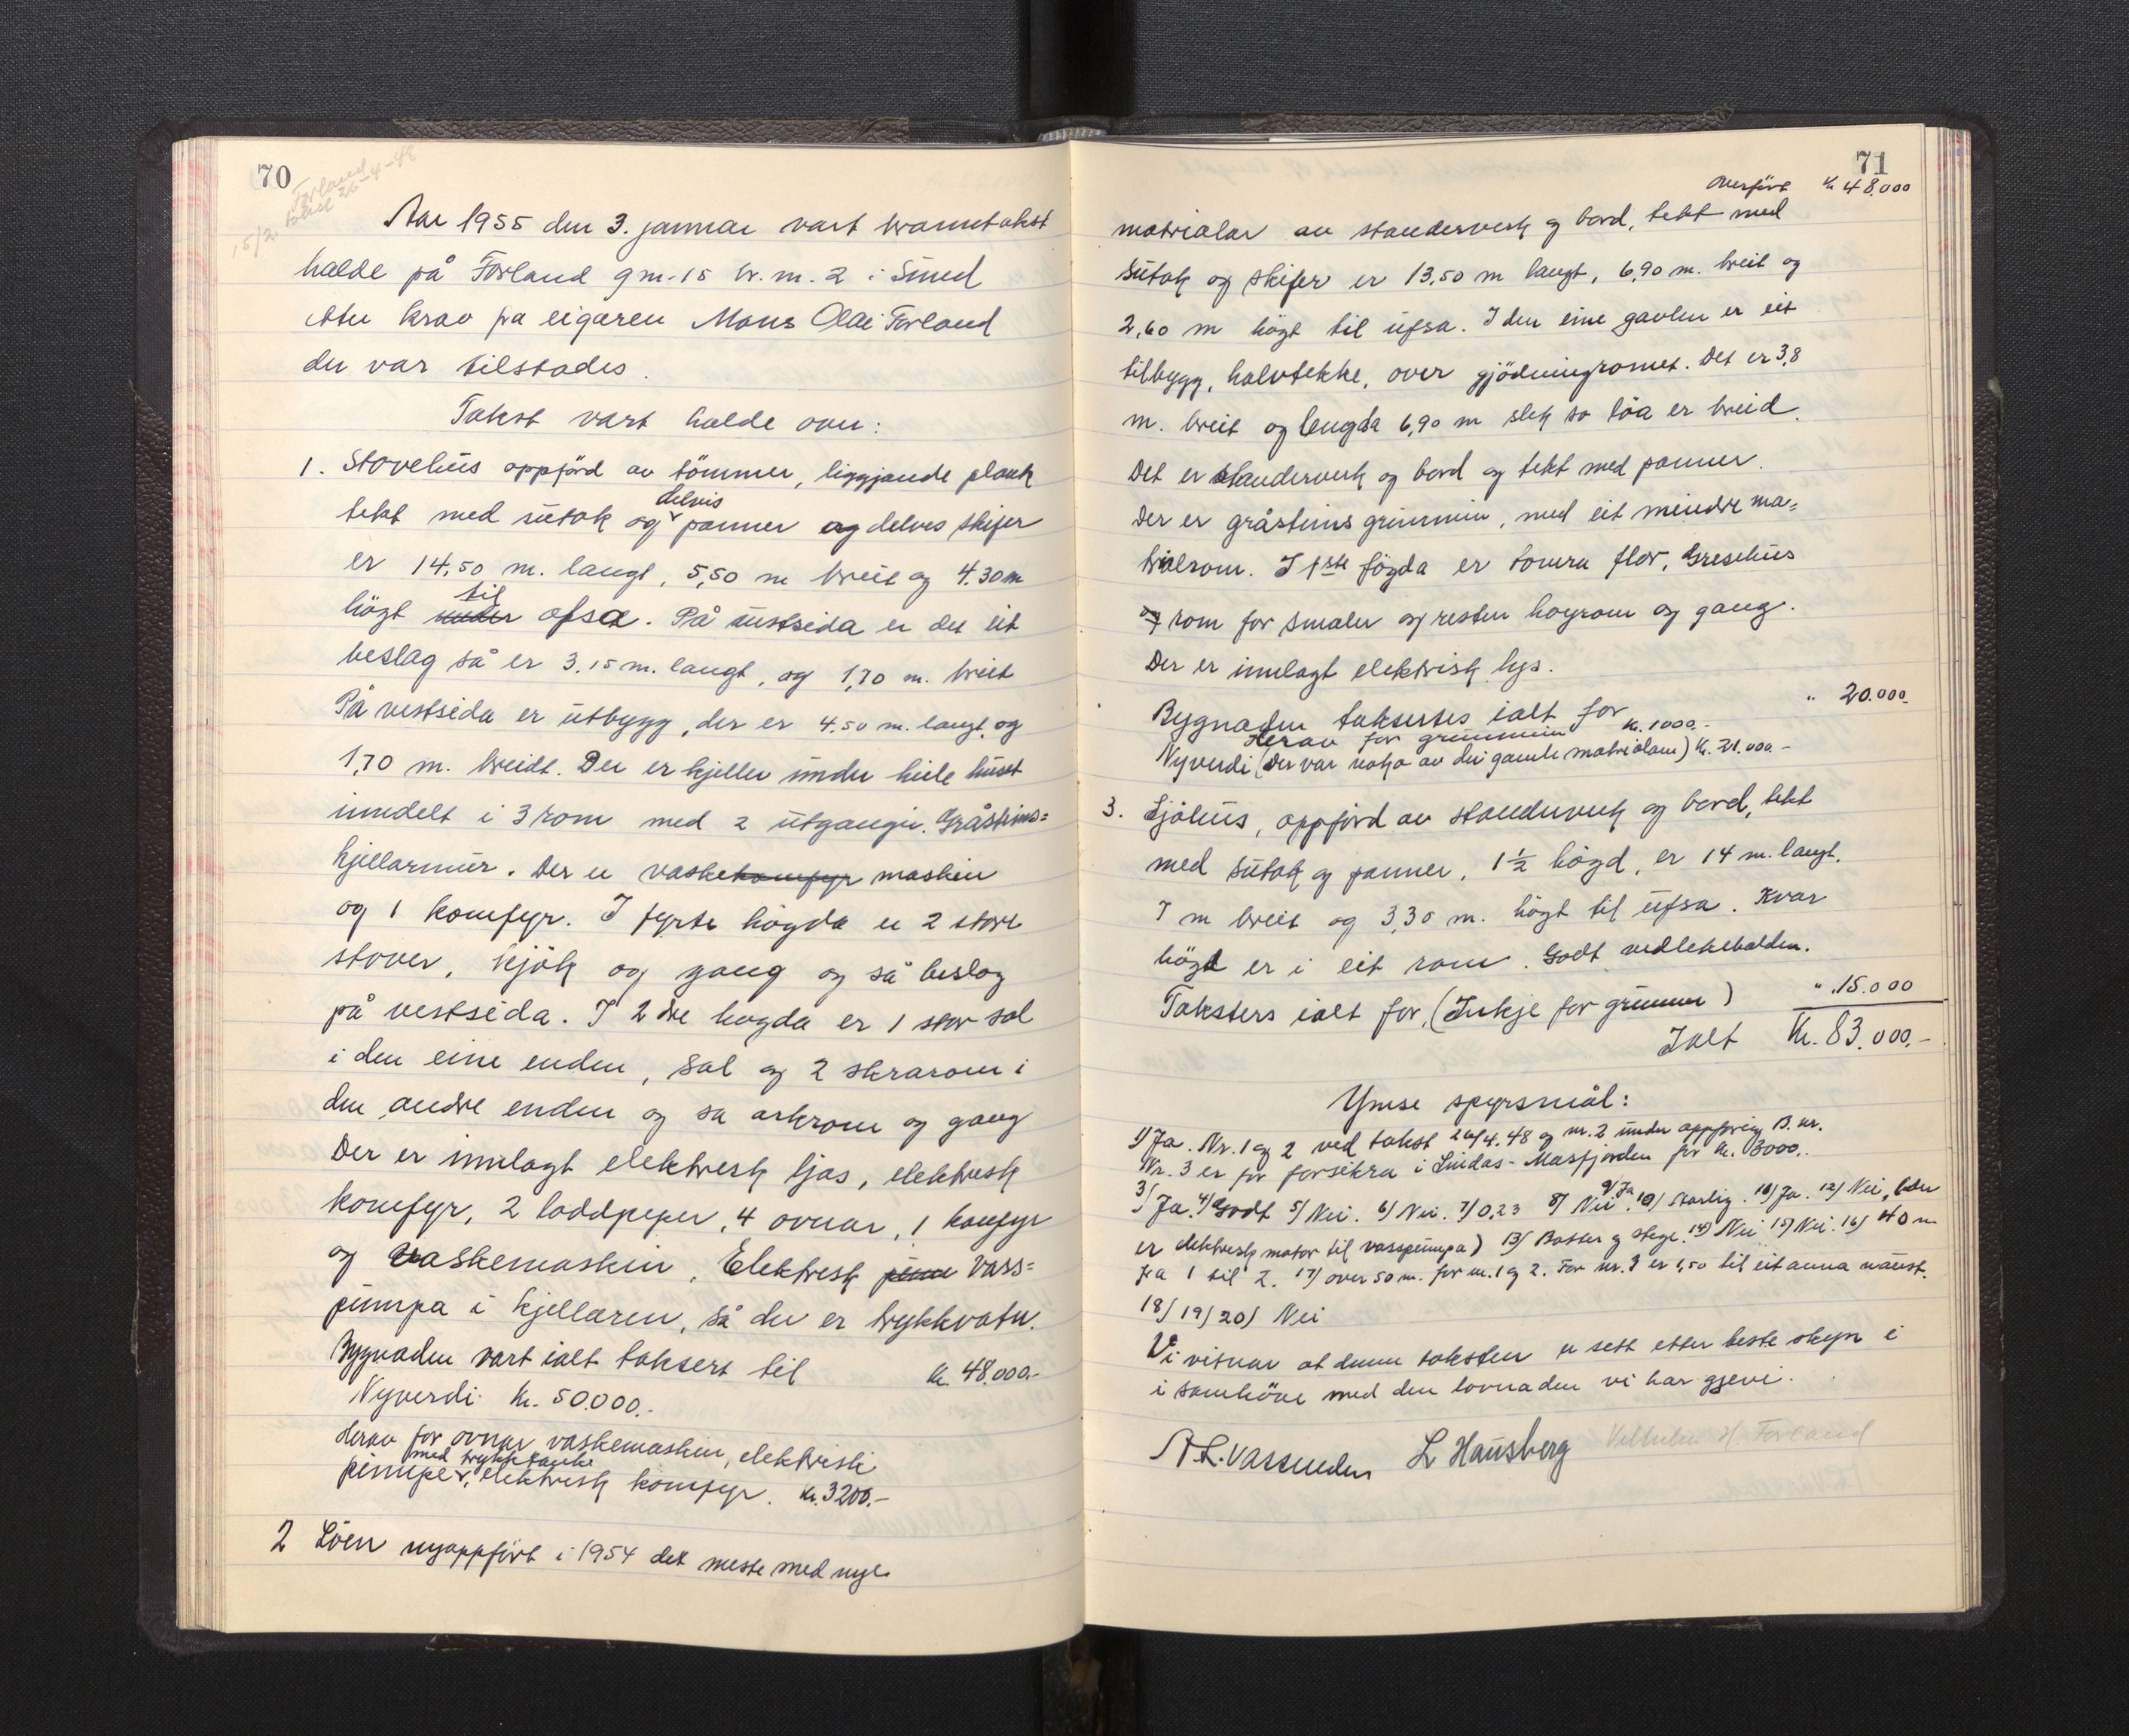 70
Forland
takst 26-4-48
15/2.
Aar 1955 den 3. januar vart branntakst
halde på Forland g.nr. 15 br. nr. 2 i Sund
etter krav frå eigaren Mons Olai Forland
der var tilstades.
Takst vart halde over:
1. Stovehus oppförd av tömmer, liggjande plank
tekt med sutak og delvis panner og delves skifer
er 14,50 m. langt, 5,50 m breit og 4.30 m
högt under til ofsa. På austsida er det eit
beslag så er 3.15 m. langt, og 1,70 m. breit
På vestsida er utbygg, der er 4,50 m. langt og
1,70 m. breidt. Der er kjeller under heile huset
inndelt i 3 rom med 2 utganger. Gråsteins=
kjellarmur. Der er vaskekomfyr maskin
og 1 komfyr. I fyrste högda er 2 store
stover, kjök og gang og så beslag
på vestsida. I 2dre högda er 1 stor sal
i den eine enden, sal og 2 skrarom i
den andre enden og sa arkrom og gang
Der er innlagt elektresk ljos, elektresk
komfyr, 2 loddpeper, 4 ovnar, 1 komfyr
og vaskemaskin, Elektresk pum vass=
pumpa i kjellaren, så der er trykkvatn.
Bygnaden vart ialt taksert til kr. 48.000.-
Nyverdi kr. 50.000.-
Herav for ovnar vaskemaskin, elektrisk
pumpe med trykktank, elektresk komfyr. kr. 3200.-
2 Löen nyoppfört i 1954 det meste med nye
71
Overfört kr 48.000
matrialar av standerverk og bord, tekt med
Sutak og skifer er 13,50 m langt, 6,90 m. breit og
2,60 m högt til ufsa. I den eine gavlen er eit
tilbygg, halvtekke, over gjödningromet. Det er 3,8
m. breit og lengda 6,90 m slik so löa er breid.
Det er standerverk og bord og tekt med panner.
Der er gråsteins grunnmur, med eit mindre ma=
trialrom. I 1ste högda er tomra flor, Grisehus
og rom for smaler og resten hoyrom og gang.
Der er innlagt elektrisk lys.
Bygnaden taksertes ialt for " 20.000.
Herav for grunnmur kr. 1000.-
Nyverdi (Der var noko av dei gamle matrialane) kr. 21.000.-
3. Sjöhus, oppförd av standerverk og bord, tekt
med sutak og panner, 1 1/2 högd, er 14 m. langt.
7 m breit og 3,30 m. högt til ufsa. Kvar
högd er i eit rom. Godt vedlikehalden.
Taksters ialt for, (Inkje for grunnmur) ". 15.000
Ialt Kr. 83.000.-
Ymse spyrsmål:
1) Ja. Nr. 1 og 2 ved takst 26/4.48 og nr. 2 under oppföring B. nr.
Nr. 3 er för forsikra i Lindås-Masfjorden for kr. 3000..
3) Ja. 4) Godt 5) Nei. 6) Nei. 7) 0,23 8) Nei. 9) Ja 10) Starlig. 11) Ja. 12) Nei, (der
er elektresk motor til vasspumpa) 13) Bötter og stege. 14) Nei 15) Nei. 16) 40 m
fra 1 til 2. 17) over 50 m. for nr. 1 og 2. For nr. 3 er 1,50 til eit anna naust.
18) 19) 20) Nei
Vi vitnar at denne taksten er sett etter beste skyn i
i samhöve med den lovnaden vi har gjevi.
A L. Vassenden L Hausberg Vilhelm H. Forland